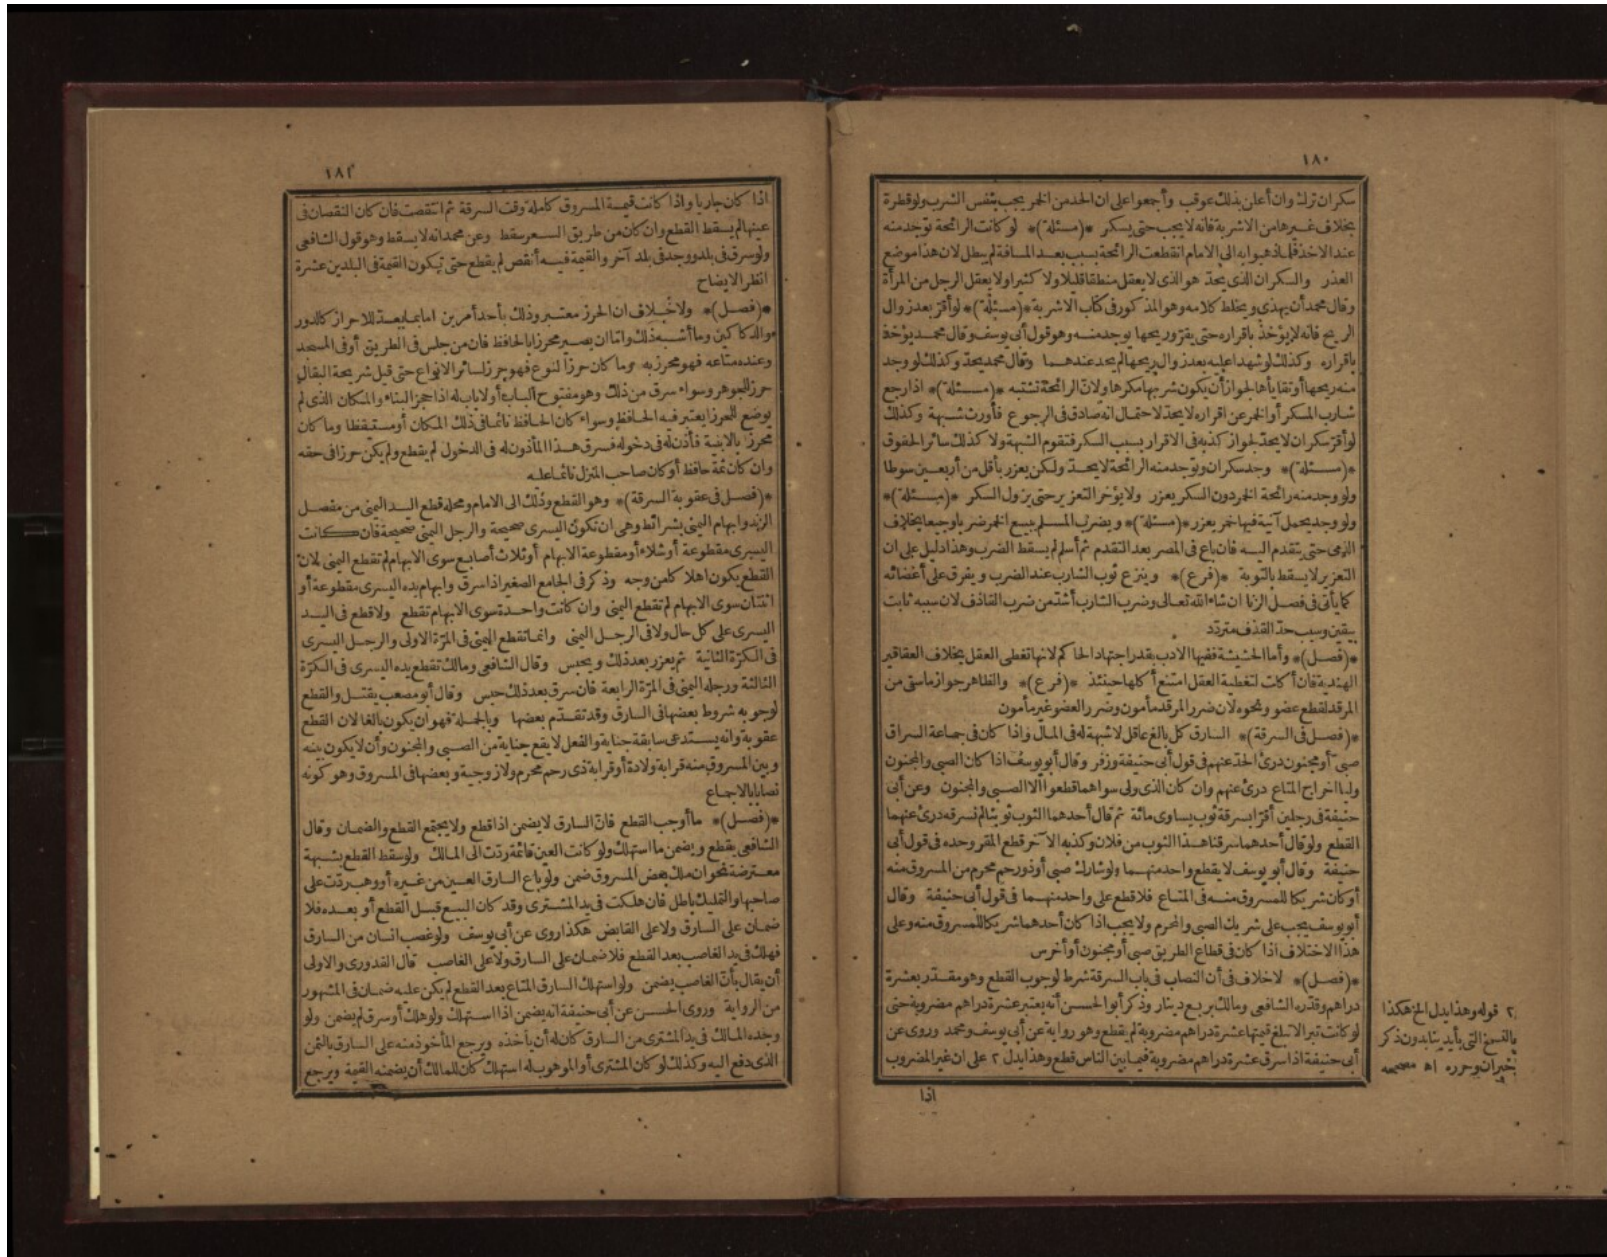 ١٨٠
سكران ترك وان أعلن بذلك عوقب وأجمعوا على ان الحد من الخمر يجب بنفس الشرب ولو قطرة
بخلاف غيرها من الاشربة فانه لا يجب حتى يسكر *(مسئلة)* لو كانت الرائحة توجد منه
عند الاخذ فلما ذهبوا به الى الامام انقطعت الرائحة بسبب بعد المسافة لم يبطل لان هذا موضع
العذر والسكران الذى يحد هو الذى لا يعقل منطقا قليلا ولا كثيرا ولا يعقل الرجل من المرأة
وقال محمد أن يهذى ويخلط كلامه وهو المذكور فى كتاب الاشربة *(مسئلة)* لو أقر بعد زوال
الريح فانه لا يؤخذ باقراره حتى يقر وريحها يوجد منه وهو قول أبى يوسف وقال محمد يؤخذ
باقراره وكذلك لو شهدا عليه بعد زوال ريحها لم يحد عندهما وقال محمد يحد وكذلك لو وجد
منه ريحها أو تقايأها لجواز أن يكون شربها مكرها ولان الرائحة تشتبه *(مسئلة)* اذا رجع
شارب المسكر أو الخمر عن اقراره لا يحد لاحتمال انه صادق فى الرجوع فأورث شبهة وكذلك
لو أقر سكران لا يحد لجواز كذبه فى الاقرار بسبب السكر فتقوم الشبهة ولا كذلك سائر الحقوق
*(مسئلة)* وجد سكران وتوجد منه الرائحة لا يحد ولكن يعزر بأقل من أربعين سوطا
ولو وجد منه رائحة الخمر دون السكر يعزر ولا يؤخر التعزير حتى يزول السكر *(مسئلة)*
ولو وجد يحمل آنية فيها خمر يعزر *(مسئلة)* ويضرب المسلم ببيع الخمر ضربا وجيعا بخلاف
الذمى حتى يتقدم اليه فان باع فى المصر بعد التقدم ثم أسلم لم يسقط الضرب وهذا دليل على ان
التعزير لا يسقط بالتوبة *(فرع)* وينزع ثوب الشارب عند الضرب ويفرق على أعضائه
كما يأتى فى فصل الزنا ان شاء الله تعالى وضرب الشارب أشد من ضرب القاذف لان سببه ثابت
بيقين وسبب حد القذف متردد
*(فصل)* وأما الحشيشة ففيها الادب بقدر اجتهاد الحاكم لانها تغطى العقل بخلاف العقاقير
الهندية فان أكلت لتغطية العقل امتنع أكلها حينئذ *(فرع)* والظاهر جواز ما سقى من
المرقد لقطع عضو ونحوه لان ضرر المرقد مأمون وضرر العضو غير مأمون
*(فصل فى السرقة)* السارق كل بالغ عاقل لا شبهة له فى المال واذا كان فى جماعة السراق
صبى أو مجنون درئ الحد عنهم فى قول أبى حنيفة وزفر وقال أبو يوسف اذا كان الصبى والمجنون
وليا اخراج المتاع درئ عنهم وان كان الذى ولى سواهما قطعوا الا الصبى والمجنون وعن أبى
حنيفة فى رجلين أقرا بسرقة ثوب يساوى مائة ثم قال أحدهما الثوب ثوبنا لم نسرقه درئ عنهما
القطع ولو قال أحدهما سرقنا هذا الثوب من فلان وكذبه الآخر قطع المقر وحده فى قول أبى
حنيفة وقال أبو يوسف لا يقطع واحد منهما ولو شارك صبى أو ذو رحم محرم من المسروق منه
أو كان شريكا للمسروق منه فى المتاع فلا قطع على واحد منهما فى قول أبى حنيفة وقال
أبو يوسف يجب على شريك الصبى والمحرم ولا يجب اذا كان أحدهما شريكا للمسروق منه وعلى
هذا الاختلاف اذا كان فى قطاع الطريق صبى أو مجنون أو أخرس
*(فصل)* لا خلاف فى أن النصاب فى باب السرقة شرط لوجوب القطع وهو مقدر بعشرة
دراهم وقدره الشافعى ومالك بربع دينار وذكر أبو الحسن أنه يعتبر عشرة دراهم مضروبة حتى
لو كانت تبرا لا تبلغ قيمتها عشرة دراهم مضروبة لم يقطع وهو رواية عن أبى يوسف ومحمد وروى عن
أبى حنيفة اذا سرق عشرة دراهم مضروبة فيما بين الناس قطع وهذا يدل ٢ على ان غير المضروب
اذا
٢ قوله وهذا يدل الخ هكذا
بالنسخ التى بأيدينا بدون ذكر
خبر ان وحرره اه مصححه
١٨١
اذا كان جاريا واذا كانت قيمة المسروق كاملة وقت السرقة ثم انتقصت فان كان النقصان فى
عينها لم يسقط القطع وان كان من طريق السعر سقط وعن محمد انه لا يسقط وهو قول الشافعى
ولو سرق فى بلد ووجد فى بلد آخر والقيمة فيه أنقص لم يقطع حتى تكون القيمة فى البلدين عشرة
انظر الايضاح
*(فصل)* ولا خلاف ان الحرز معتبر وذلك بأحد أمرين اما بما يعد للاحراز كالدور
والدكاكين وما أشبه ذلك واما ان يصير محرزا بالحافظ فان من جلس فى الطريق أو فى المسجد
وعنده متاعه فهو محرز به وما كان حرزا لنوع فهو حرز لسائر الانواع حتى قيل شريحة البقال
حرز للجوهر وسواء سرق من ذلك وهو مفتوح الباب أو لا باب له اذا حجز البناء والمكان الذى لم
يوضع للحرز يعتبر فيه الحافظ وسواء كان الحافظ نائما فى ذلك المكان أو مستيقظا وما كان
محرزا بالابنية فأذن له فى دخوله فسرق هذا المأذون له فى الدخول لم يقطع ولم يكن حرزا فى حقه
وان كان ثمة حافظ أو كان صاحب المنزل نائما عليه
*(فصل فى عقوبة السرقة)* وهو القطع وذلك الى الامام ومحله قطع اليد اليمنى من مفصل
الزند وابهام اليمنى بشرائط وهى ان تكون اليسرى صحيحة والرجل اليمنى صحيحة فان كانت
اليسرى مقطوعة أو شلاء أو مقطوعة الابهام أو ثلاث أصابع سوى الابهام لم تقطع اليمنى لان
القطع يكون اهلاكا من وجه وذكر فى الجامع الصغير اذا سرق وابهام يده اليسرى مقطوعة أو
اثنتان سوى الابهام لم تقطع اليمنى وان كانت واحدة سوى الابهام تقطع ولا قطع فى اليد
اليسرى على كل حال ولا فى الرجل اليمنى وانما تقطع اليمنى فى المرة الاولى والرجل اليسرى
فى الكرة الثانية ثم يعزر بعد ذلك ويحبس وقال الشافعى ومالك تقطع يده اليسرى فى الكرة
الثالثة ورجله اليمنى فى المرة الرابعة فان سرق بعد ذلك حبس وقال أبو مصعب يقتل والقطع
لوجوبه شروط بعضها فى السارق وقد تقدم بعضها وبالجملة فهو ان يكون بالغا لان القطع
عقوبة وانه يستدعى سابقة جناية والفعل لا يقع جناية من الصبى والمجنون وأن لا يكون بينه
وبين المسروق منه قرابة ولادة أو قرابة ذى رحم محرم ولا زوجية وبعضها فى المسروق وهو كونه
نصابا بالاجماع
*(فصل)* ما أوجب القطع فان السارق لا يضمن اذا قطع ولا يجتمع القطع والضمان وقال
الشافعى يقطع ويضمن ما استهلك ولو كانت العين قائمة ردت الى المالك ولو سقط القطع بشبهة
معترضة نحو ان ملك بعض المسروق ضمن ولو باع السارق العين من غيره أو وهب ردت على
صاحبها والتمليك باطل فان هلكت فى يد المشترى وقد كان البيع قبل القطع أو بعده فلا
ضمان على السارق ولا على القابض هكذا روى عن أبى يوسف ولو غصب انسان من السارق
فهلك فى يد الغاصب بعد القطع فلا ضمان على السارق ولا على الغاصب قال القدورى والاولى
أن يقال بأن الغاصب يضمن ولو استهلك السارق المتاع بعد القطع لم يكن عليه ضمان فى المشهور
من الرواية وروى الحسن عن أبى حنيفة انه يضمن اذا استهلك ولو هلك أو سرق لم يضمن ولو
وجده المالك فى يد المشترى من السارق كان له أن يأخذه ويرجع المأخوذ منه على السارق بالثمن
الذى دفع اليه وكذلك لو كان المشترى أو الموهوب له استهلك كان للمالك أن يضمنه القيمة ويرجع